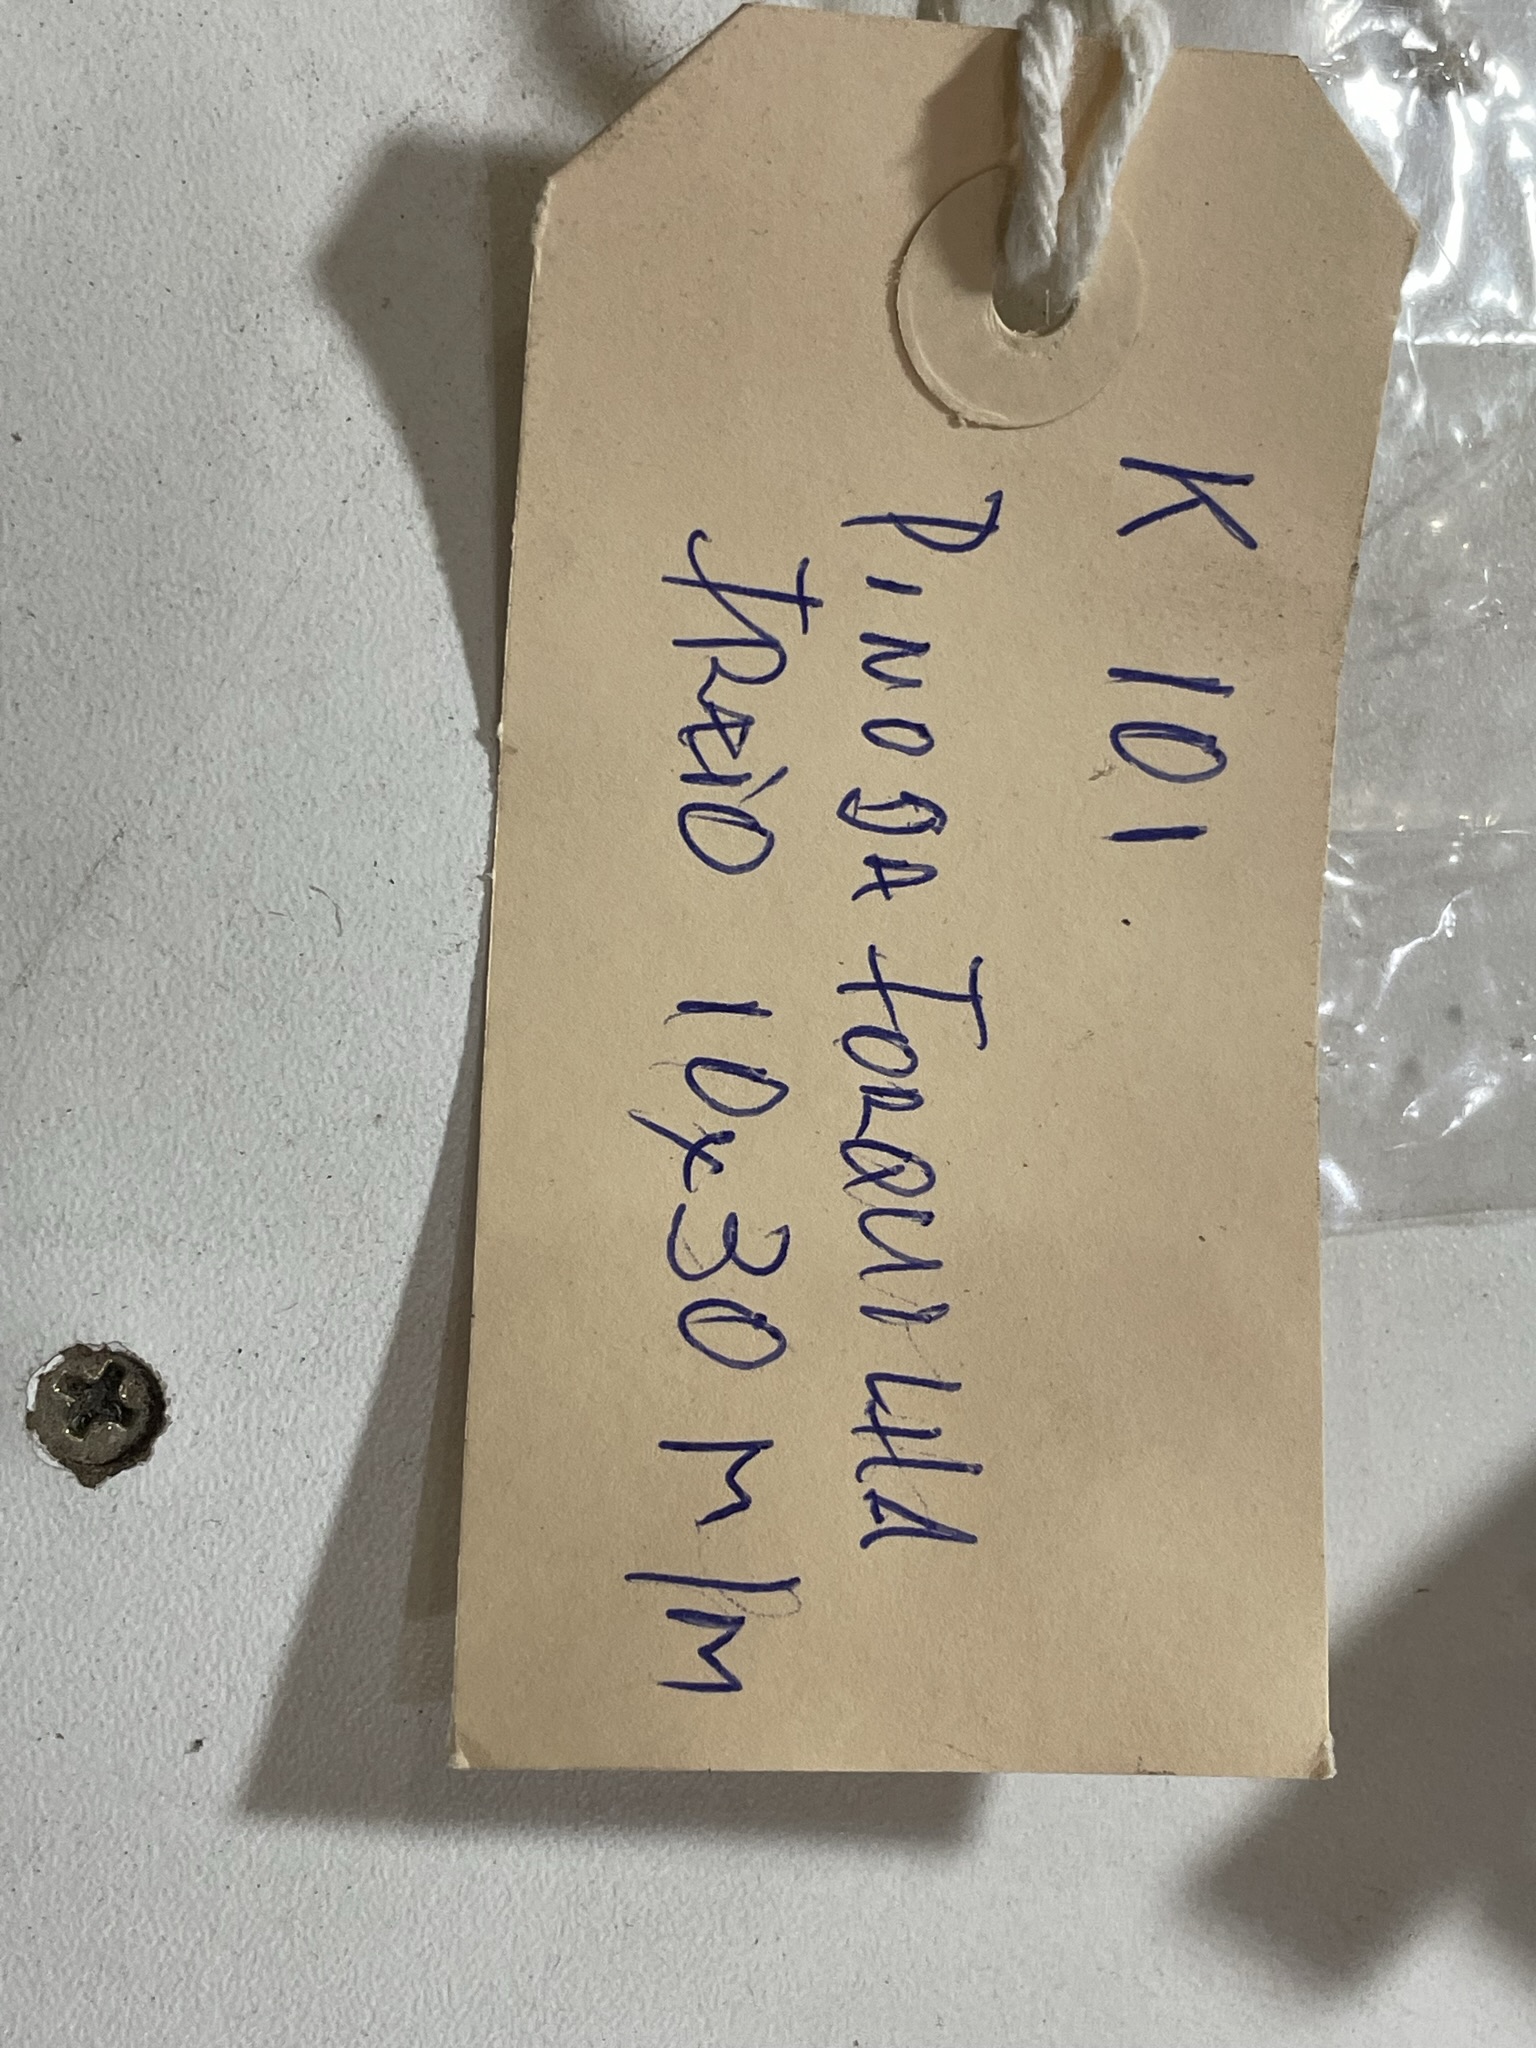 K 101
PINO DA FORQUILHA
FREIO 10x30 M/M